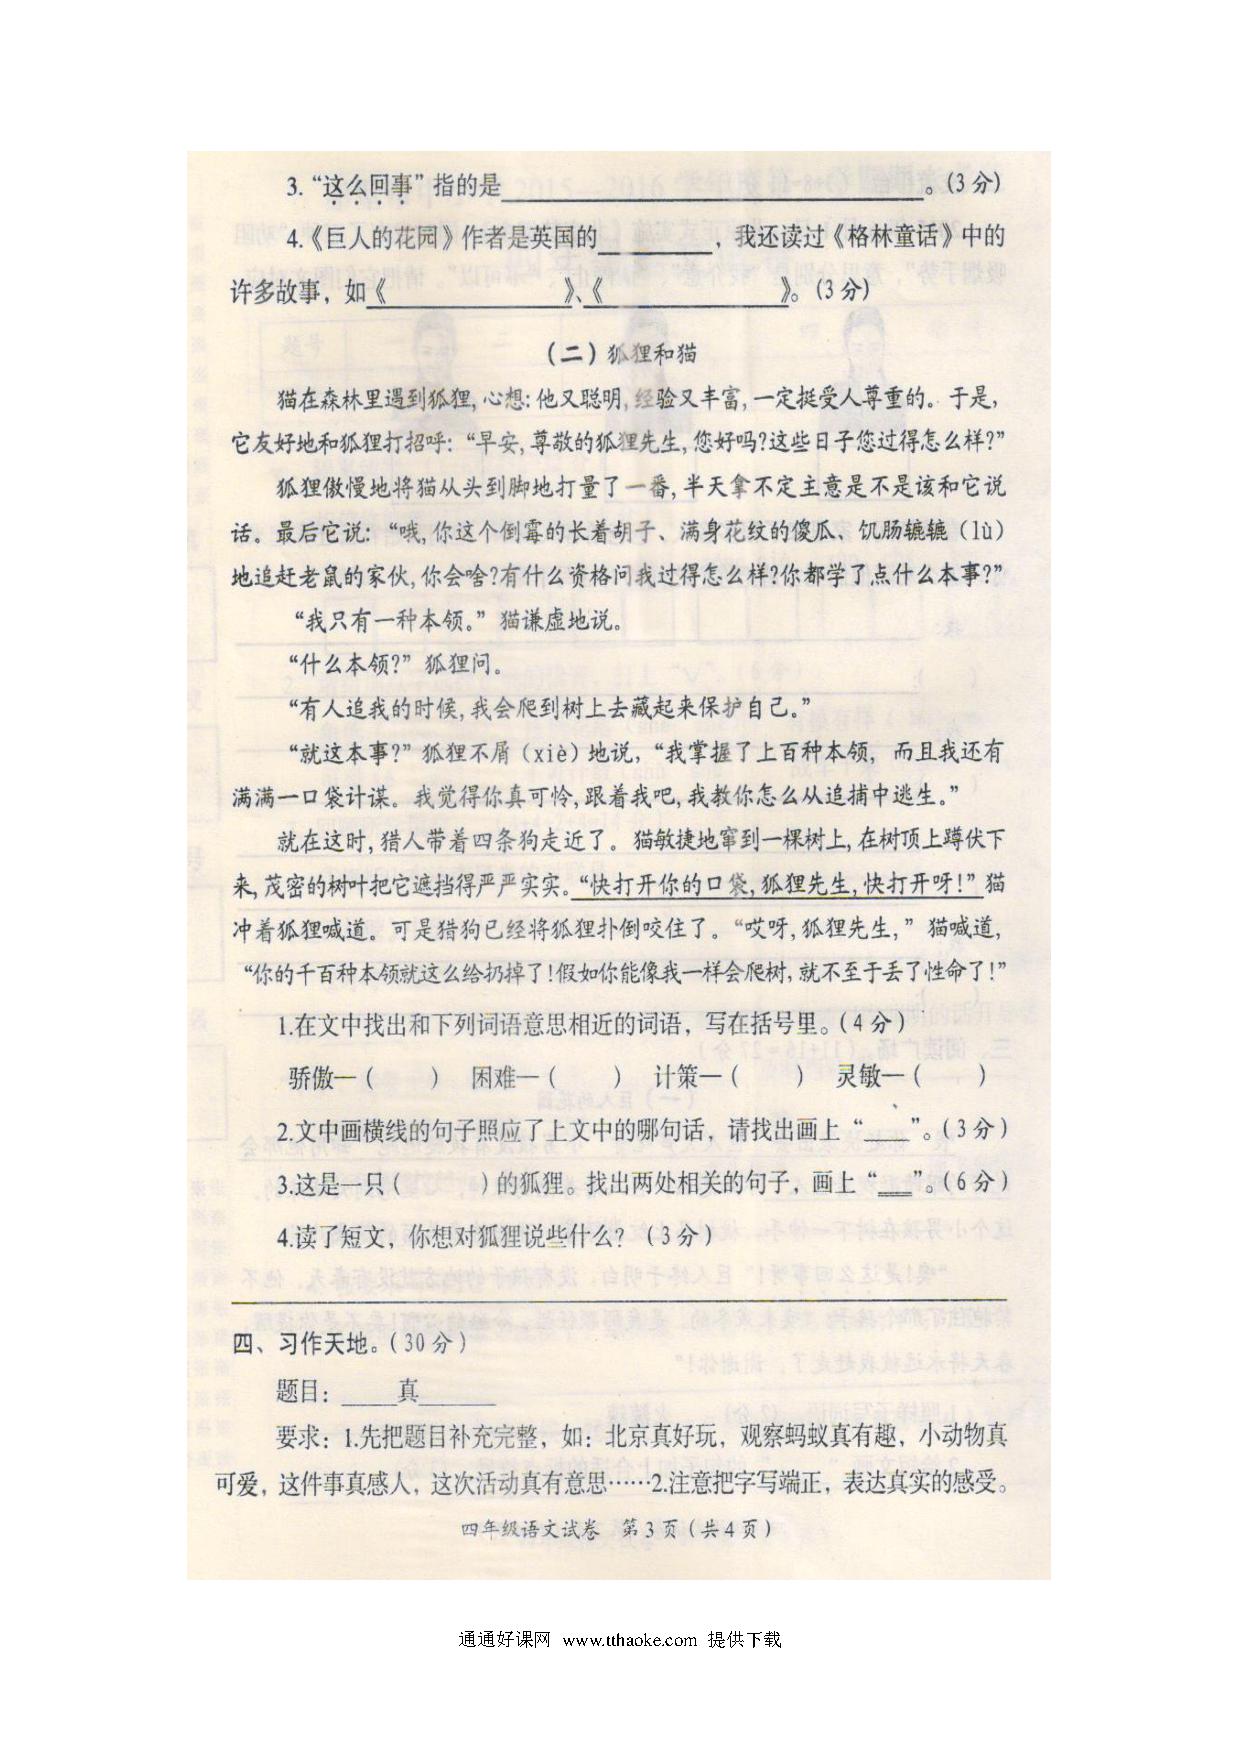 3.“这么回事”指的是____________________。(3分)
4.《巨人的花园》作者是英国的________，我还读过《格林童话》中的
许多故事，如《            》、《            》。(3分)
(二)狐狸和猫
猫在森林里遇到狐狸,心想:他又聪明,经验又丰富,一定挺受人尊重的。于是,
它友好地和狐狸打招呼:“早安,尊敬的狐狸先生,您好吗?这些日子您过得怎么样?”
狐狸傲慢地将猫从头到脚地打量了一番,半天拿不定主意是不是该和它说
话。最后它说:“哦,你这个倒霉的长着胡子、满身花纹的傻瓜、饥肠辘辘(lù)
地追赶老鼠的家伙,你会啥?有什么资格问我过得怎么样?你都学了点什么本事?”
“我只有一种本领。”猫谦虚地说。
“什么本领?”狐狸问。
“有人追我的时候,我会爬到树上去藏起来保护自己。”
“就这本事?”狐狸不屑(xiè)地说,“我掌握了上百种本领，而且我还有
满满一口袋计谋。我觉得你真可怜,跟着我吧,我教你怎么从追捕中逃生。”
就在这时,猎人带着四条狗走近了。猫敏捷地窜到一棵树上,在树顶上蹲伏下
来,茂密的树叶把它遮挡得严严实实。“快打开你的口袋,狐狸先生,快打开呀!”猫
冲着狐狸喊道。可是猎狗已经将狐狸扑倒咬住了。“哎呀,狐狸先生,”猫喊道,
“你的千百种本领就这么给扔掉了!假如你能像我一样会爬树,就不至于丢了性命了!”
1.在文中找出和下列词语意思相近的词语，写在括号里。(4分)
骄傲—(    ) 困难—(    ) 计策—(    ) 灵敏—(    )
2.文中画横线的句子照应了上文中的哪句话，请找出画上“____”。(3分)
3.这是一只(      )的狐狸。找出两处相关的句子，画上“___”。(6分)
4.读了短文，你想对狐狸说些什么？(3分)
四、习作天地。(30分)
题目：_____真_______
要求：1.先把题目补充完整，如：北京真好玩，观察蚂蚁真有趣，小动物真
可爱，这件事真感人，这次活动真有意思……2.注意把字写端正，表达真实的感受。
四年级语文试卷 第3页(共4页)
通通好课网 www.tthaoke.com 提供下载